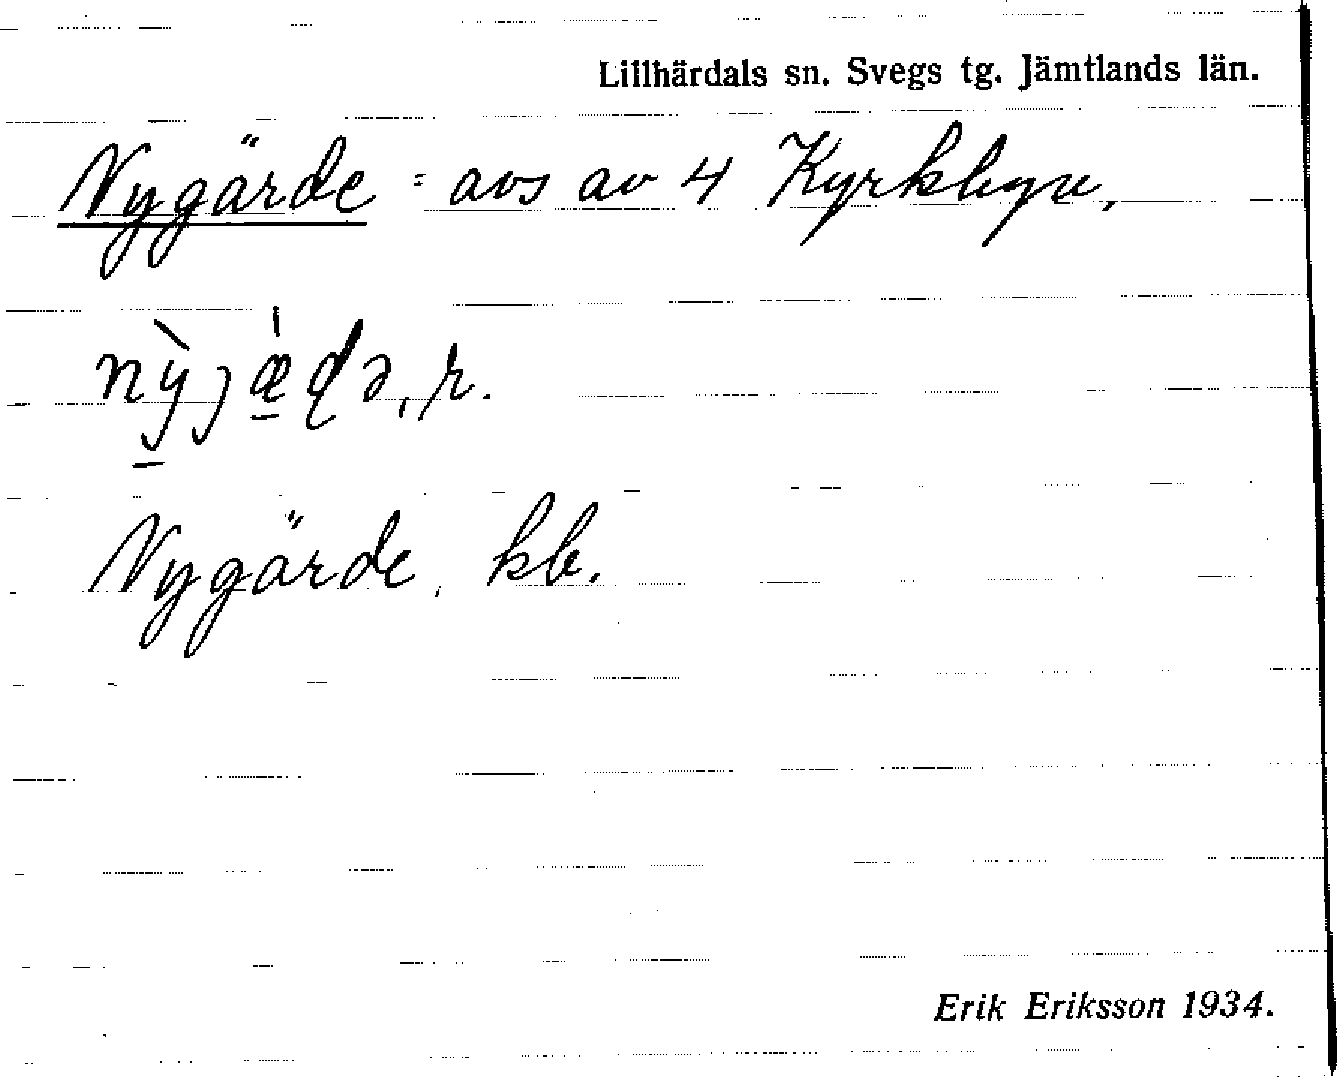 Lillhärdals sn. Svegs tg. Jämtlands län.
Nygärde = avs av 4 Kyrkbyn,
nỳ̠jæ̠̍ɖə, r.
Nygärde, kb.
Erik Eriksson 1934.